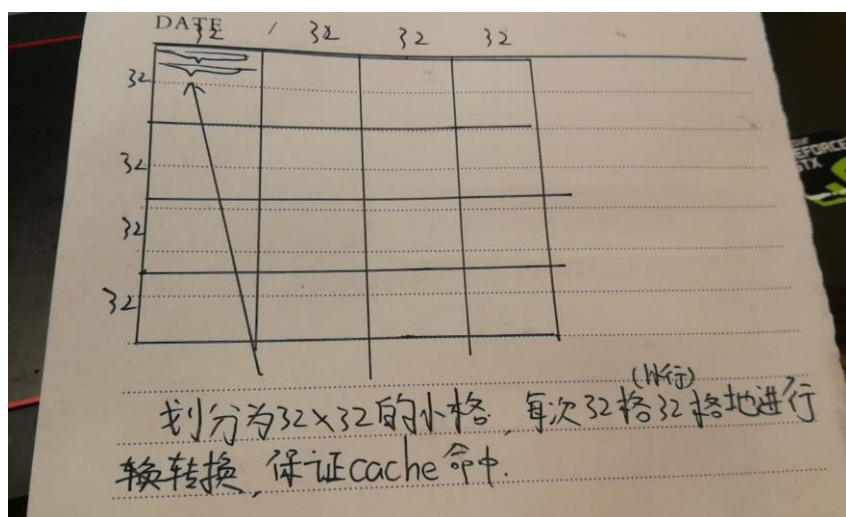 DATE
32 / 32 32 32
32
32
32
32
(以行)
划分为32×32的小格，每次32格32格地进行
转换，保证cache命中.
EFORCE
GTX